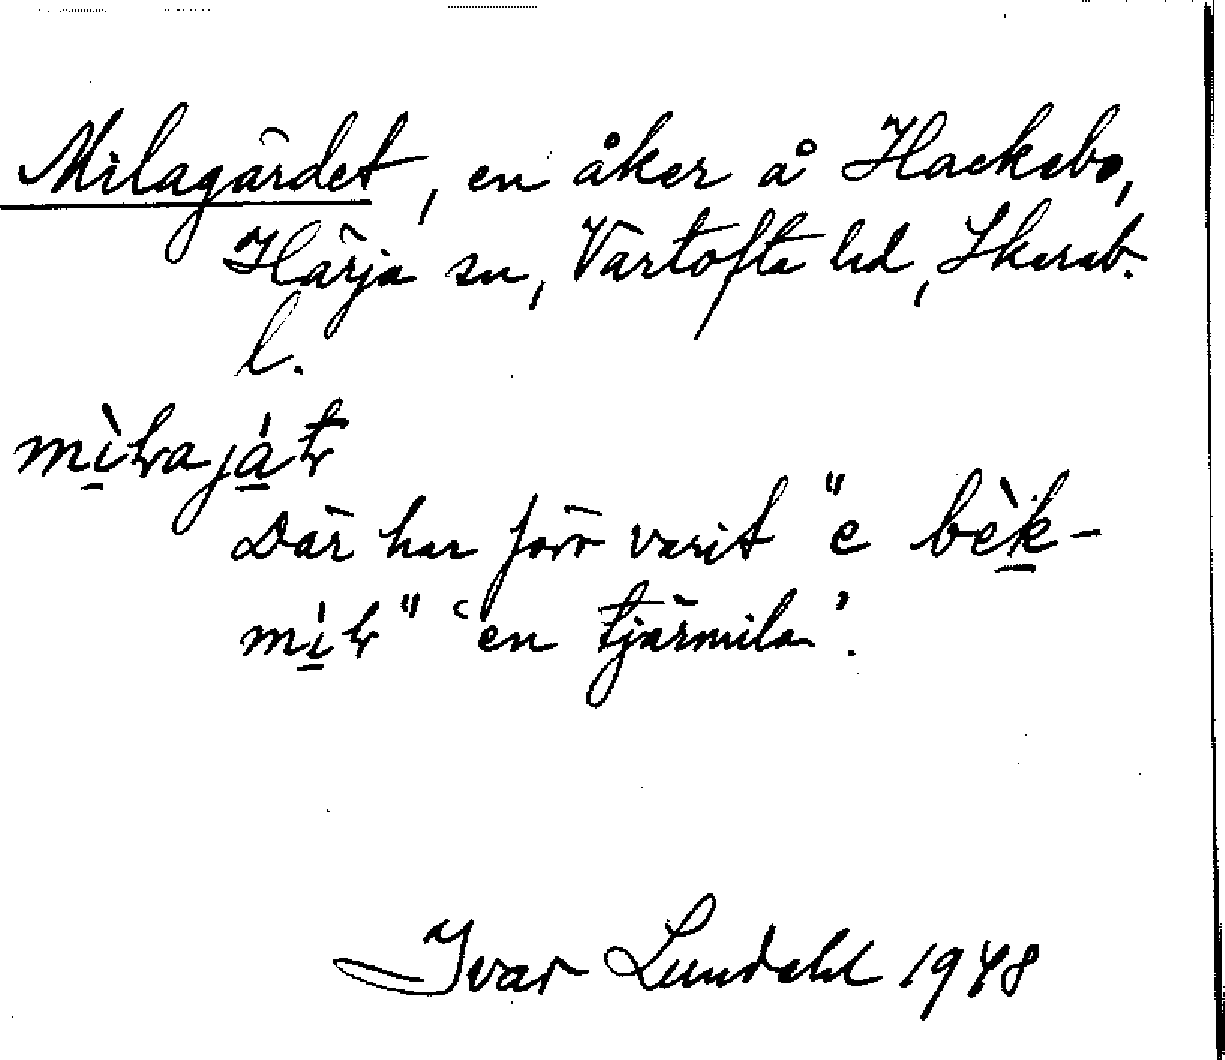 Milagärdet, en åker å Hackebo,
Härja sn, Vartofta hd, Skarab.
l.
mìɫajáɫ
Där har förr varit "e bèk-
míɫ" 'en tjärmila'.
Ivar Lundahl 1948